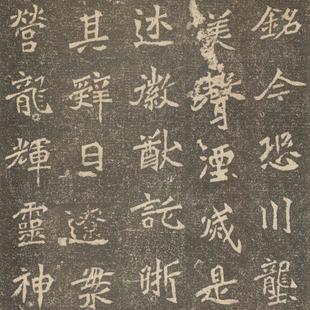 銘今恐川壟
美聲湮滅是
述徽猷託晰
其辭曰
營龍輝靈神